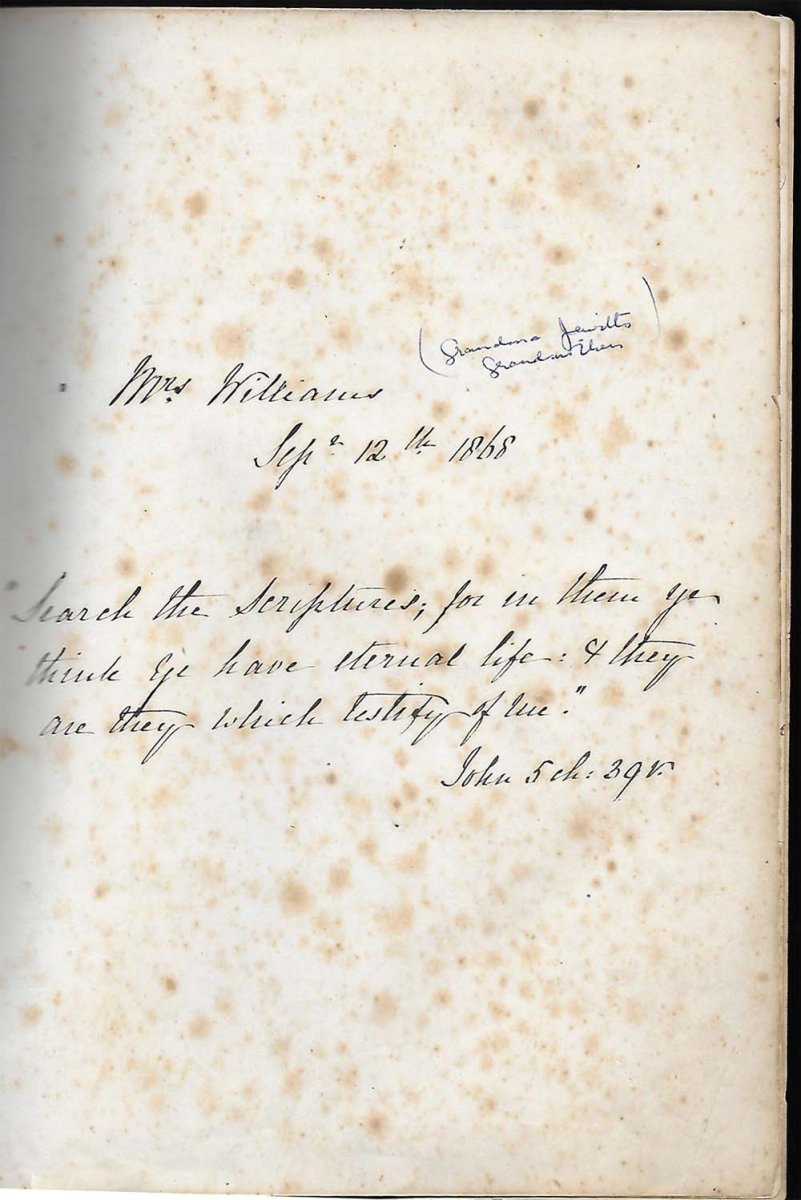 (Grandma Jewitts
Grandmother)
Mrs Williams
Sepr 12th 1868
"Search the Scriptures; for in them ye
think ye have eternal life: & they
are they which testify of me."
John 5 ch: 39 v.